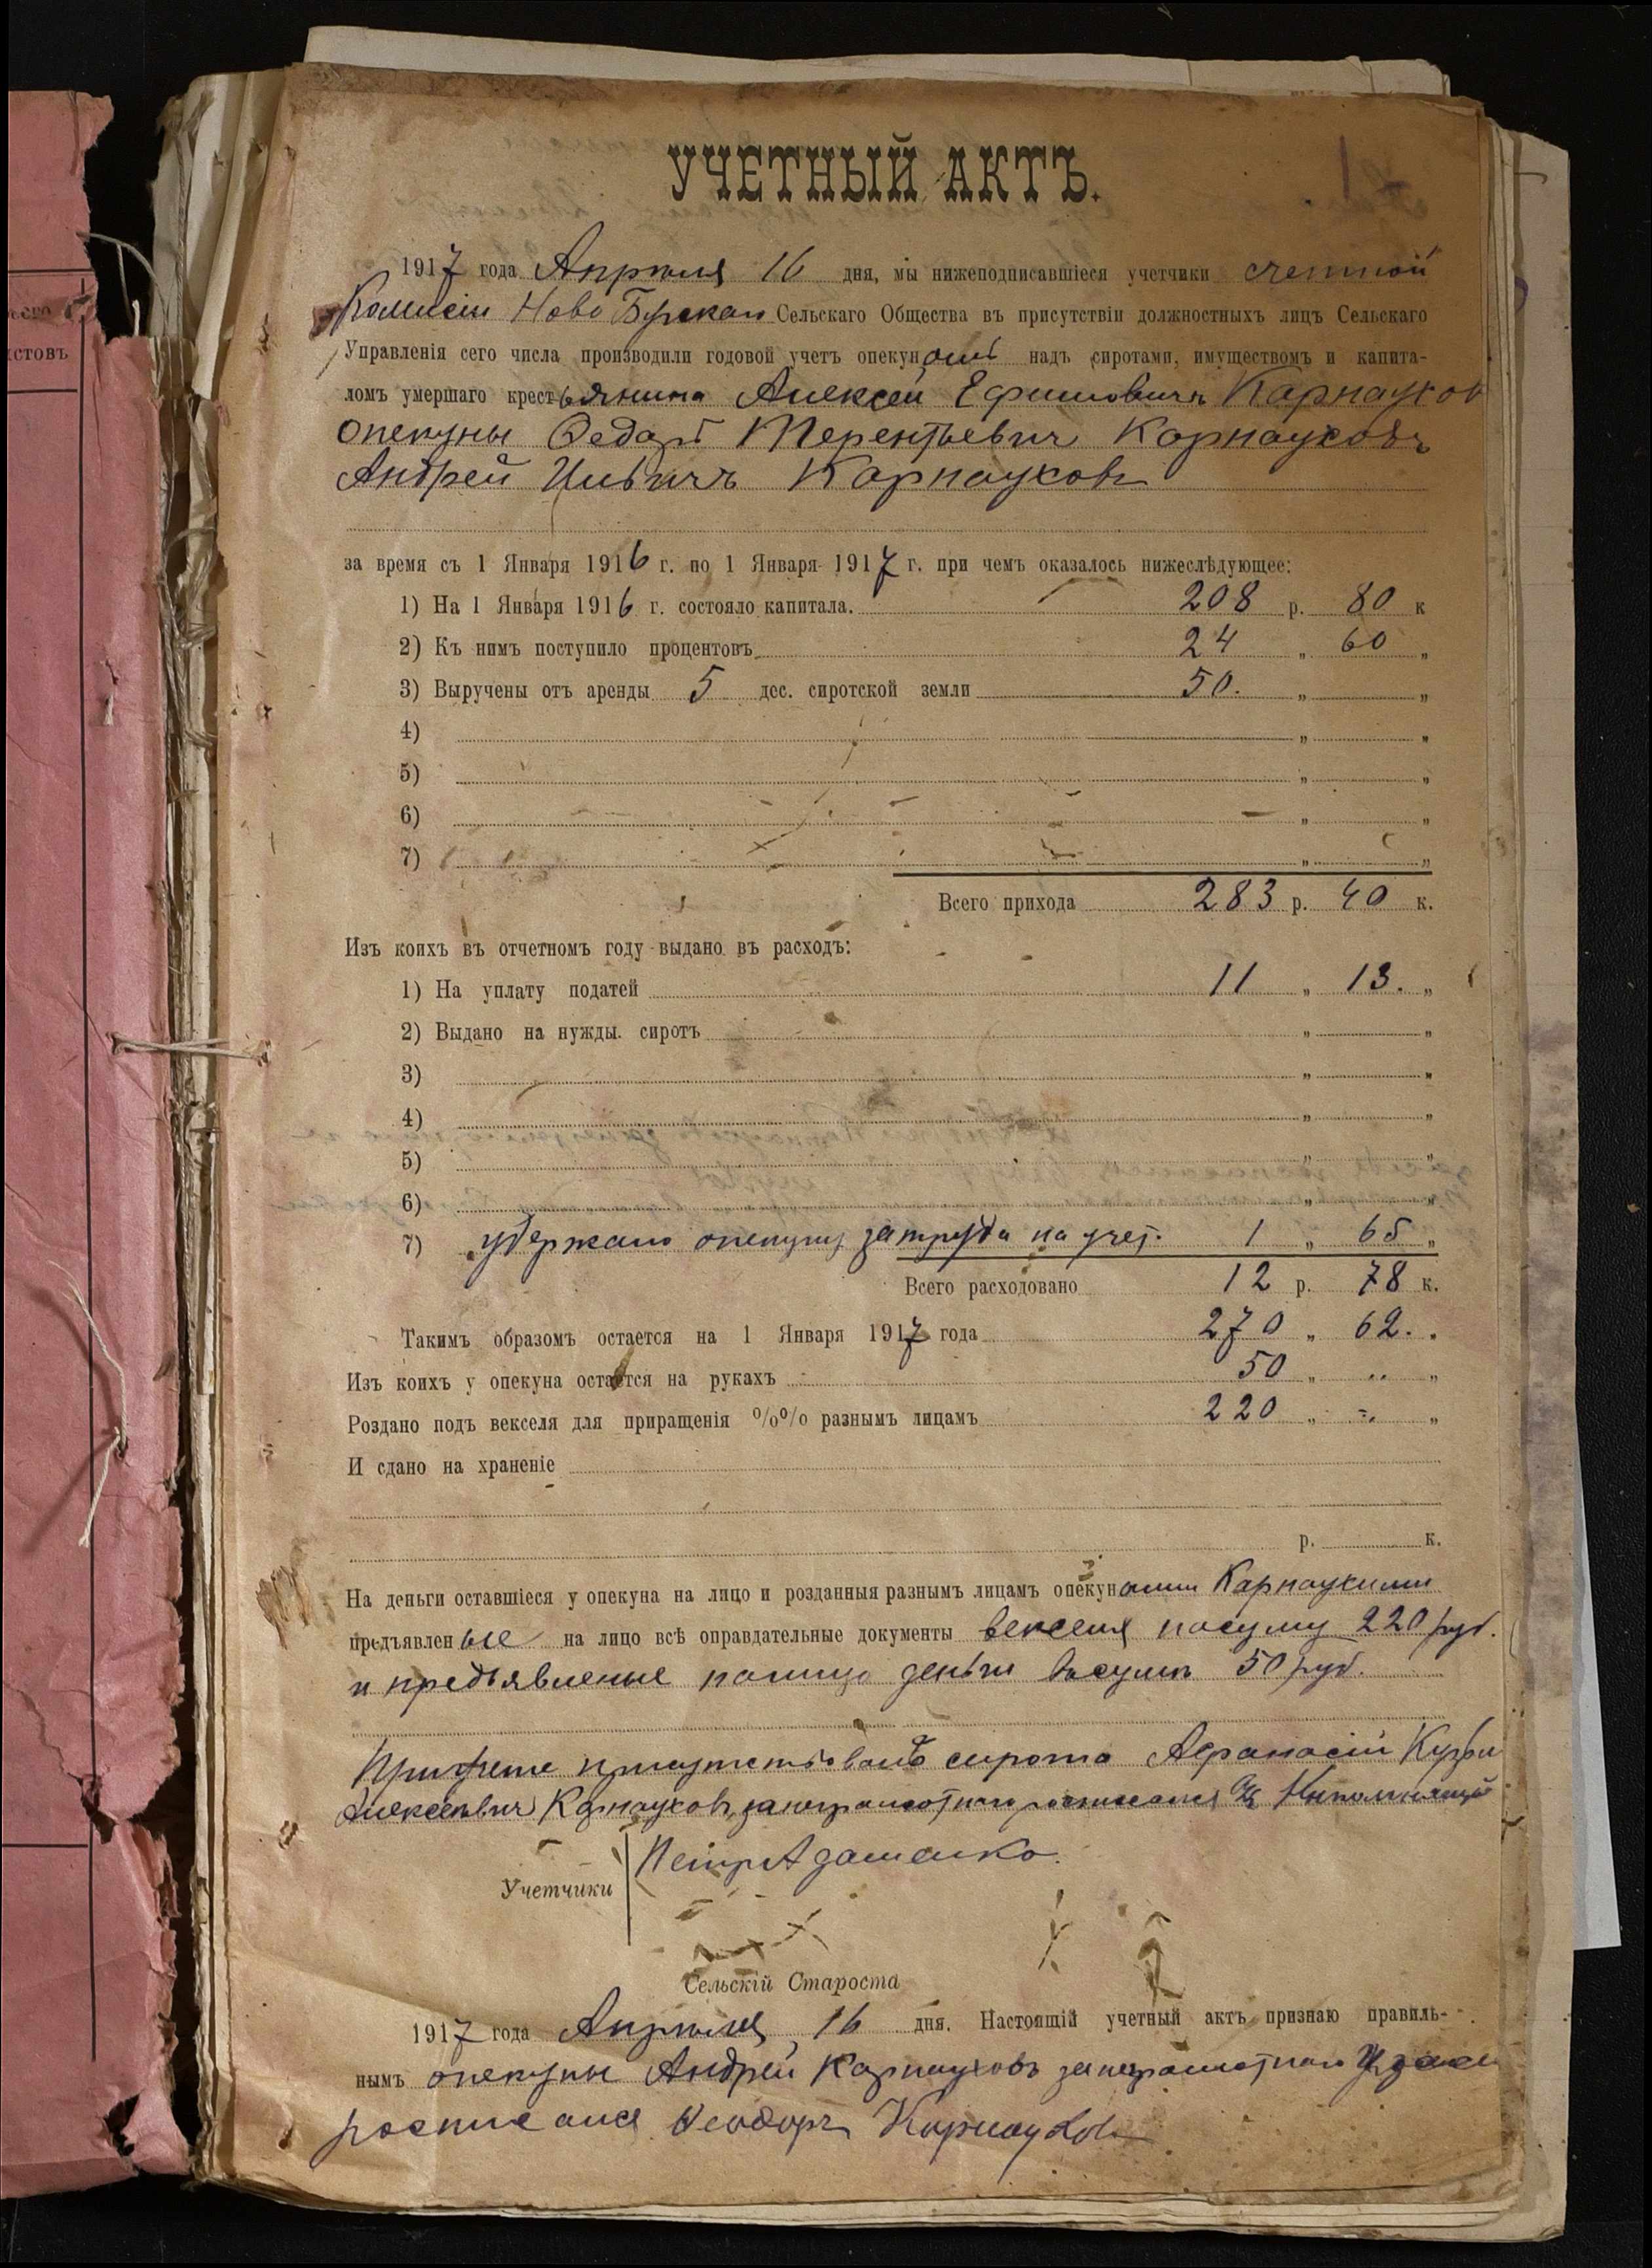 УЧЕТНЫЙ АКТЪ.
1917 года Апреля 16 дня, мы нижеподписавшіеся учетчики счетной
Комисіи Ново Бурекан Сельскаго Общества въ присутствіи должностныхъ лицъ Сельскаго
Управленія сего числа производили годовой учетъ опекунамъ надъ сиротами, имуществомъ и капита-
ломъ умершаго крестьянина Алексей Ефимовичъ Карнаухов
опекуны Федоръ Терентьевич Карнауховъ
Андрей Карнауховъ
за время съ 1 Января 1916 г. по 1 Января 1917 г. при чемъ оказалось нижеслѣдующее:
1) На 1 Января 1916 г. состояло капитала. 208 р. 80 к
2) Къ нимъ поступило процентовъ 24 „ 60 „
3) Выручены отъ аренды 5 дес. сиротской земли 50. „ „
4) „ „
5) „ „
6) „ „
7) „ „
Всего прихода 283 р. 40 к.
Изъ коихъ въ отчетномъ году выдано въ расходъ:
1) На уплату податей 11 „ 13. „
2) Выдано на нужды. сиротъ „ „
3) „ „
4) „ „
5) „ „
6) „ „
7) удержано опекуну за труды на учет. 1 „ 65 „
Всего расходовано 12 р. 78 к.
Такимъ образомъ остается на 1 Января 1917 года 270 „ 62. „
Изъ коихъ у опекуна остается на рукахъ 50 „ „
Роздано подъ векселя для приращенія %% разнымъ лицамъ 220 „ „
И сдано на храненіе
р. к.
На деньги оставшіеся у опекуна на лицо и розданныя разнымъ лицамъ опекунами Карнаухими
предъявленые на лицо всѣ оправдательные документы векселя насуму 220 руб.
и предъявленые налицо деньги васуми 50 руб.
При учете присутствовалъ сирота Афанасій
Алексеевич Карнауховъ, за неграмотного росписался
Учетчики Петр Адаменко.
Сельскій Староста
1917 года Апреля 16 дня. Настоящій учетный актъ признаю правиль-
нымъ опекуны Андрей Карнауховъ за неграмотнаго
росписался Феодоръ Карнаухов